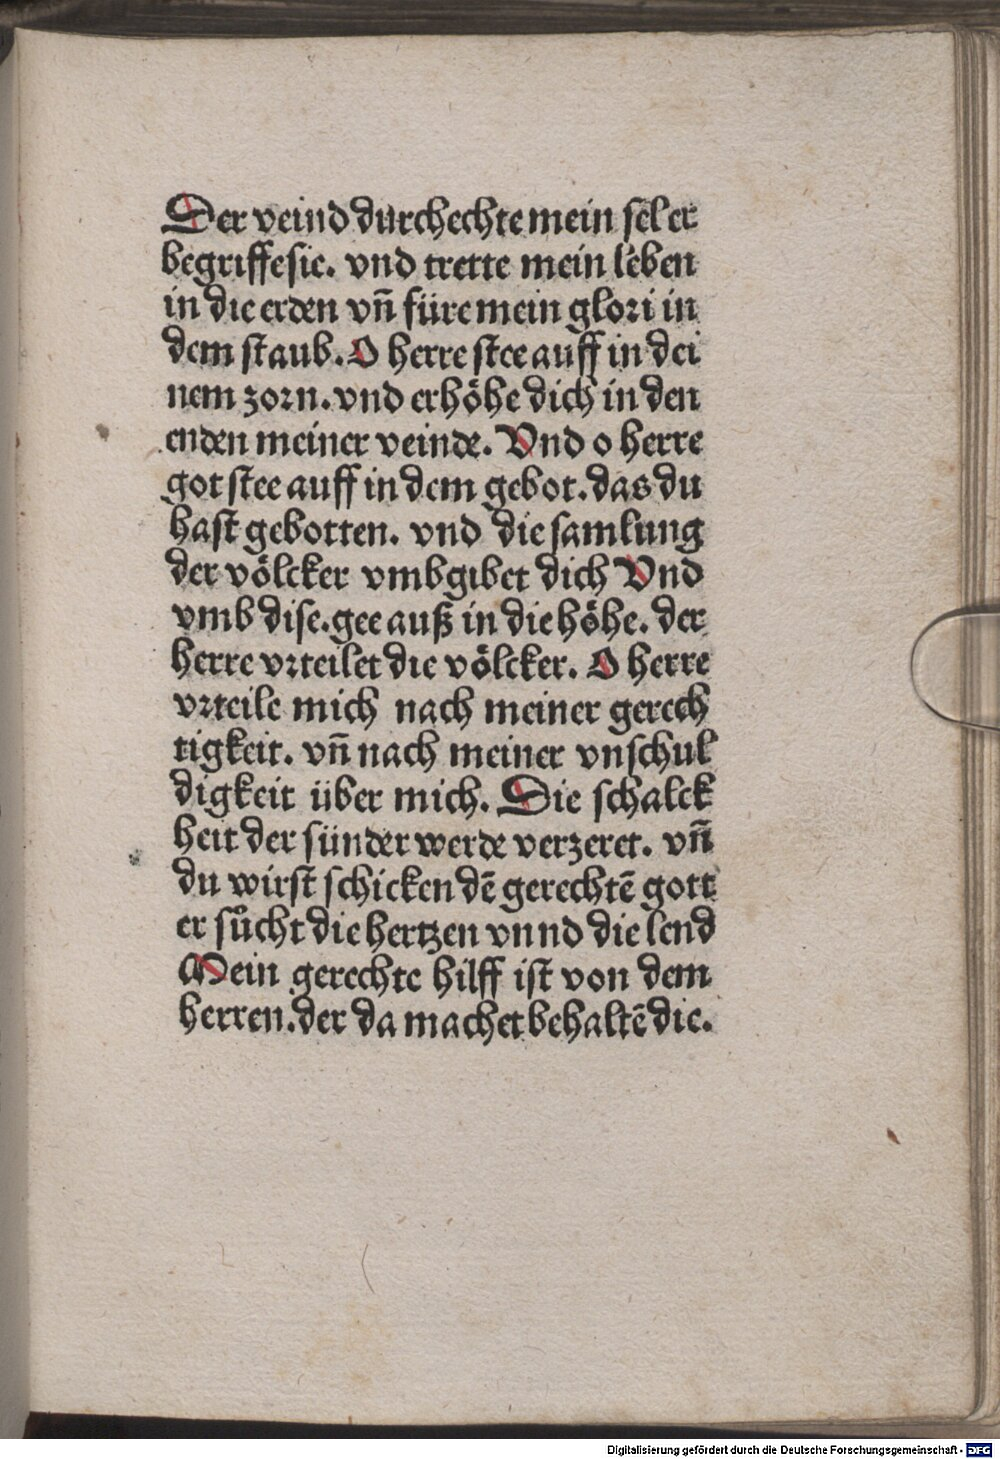 Der veind durchechte mein sel er
begriffe sie. vnd trette mein leben
in die erden vñ füre mein glori in
dem staub. O herre stee auff in dei
nem zorn. vnd erhöhe dich in den
enden meiner veinde. Vnd o herre
got stee auff in dem gebot. das du
hast gebotten. vnd die samlung
der völcker vmbgibet dich Vnd
vmb dise. gee auß in die höhe. der
herre vrteilet die völcker. O herre
vrteile mich nach meiner gerech
tigkeit. vñ nach meiner vnschul
digkeit über mich. Die schalck
heit der sünder werde verzeret. vñ
du wirst schicken dē gerechtē gott
er sůcht die hertzen vnnd die lend
Mein gerechte hilff ist von dem
herren. der da machet behaltē die.
Digitalisierung gefördert durch die Deutsche Forschungsgemeinschaft - DFG